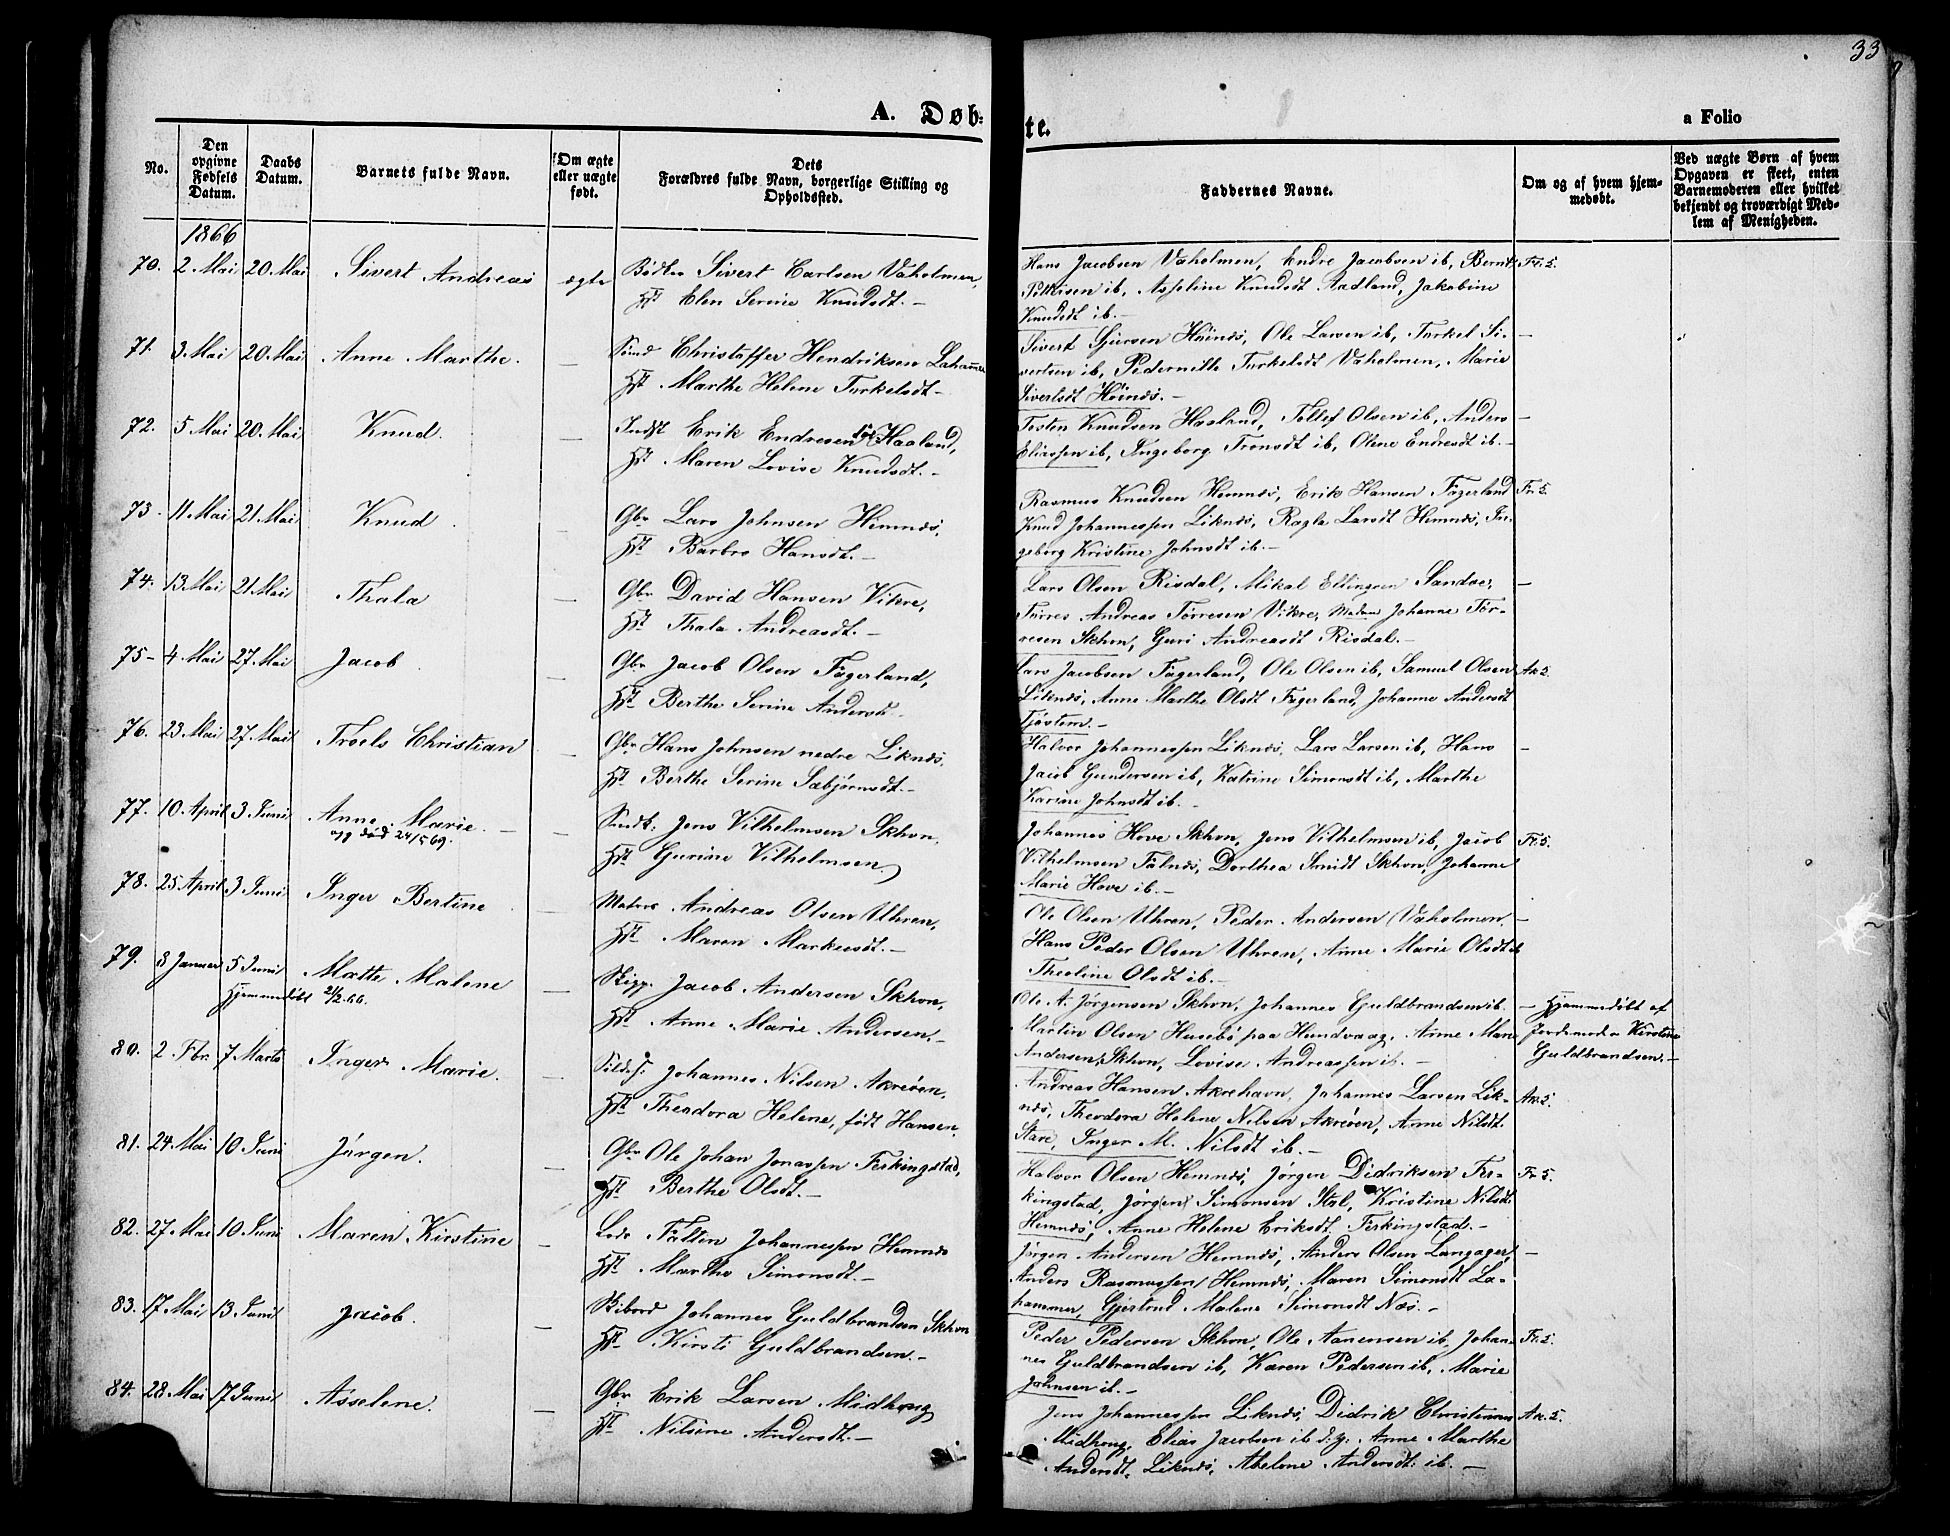 33
A. Døb-
te.
a Folio
No.
Den opgivne Fødsels Datum.
Daabs Datum.
Barnets fulde Navn.
Om ægte eller uægte født.
Dets Forældres fulde Navn, borgerlige Stilling og Opholdssted.
Faddernes Navne.
Om og af hvem hjemmedøbt.
Ved uægte Børn af hvem Opgaven er skeet, enten Barnemoderen eller hvilket bekjendt og troværdigt Medlem af Menigheden.
1866
70. 2 Mai 20 Mai Sivert Andreas ægte Sivert Carlsen Vaholmen,
Hst. Elen Serine Knudsdt. -
Hans Jacobsen Vaholmen, Endre Jacobsen ib, Bernt Fr. S.
ib, Asseline Knudsdt Aadland, Jakobine
Knudsdt ib. -
71. 3 Mai 20 Mai Anne Marthe. — Christoffer Hendriksen Lahammer
Hst. Marthe Helene Turkelsdt -
Sivert Gjersen Høinæs, Ole Larsen ib, Turkel Si- —
vertsen ib, Pedernille Turkelsdt Vaholmen, Marie
Sivertsdt Høinæs. -
72. 5 Mai 20 Mai Knud. — Indst Erik Endresen Haaland,
Hst. Maren Lovise Knudsdt. -
Tosten Knudsen Haaland, Tollef Olsen ib, Anders —
Eliassen ib, Ingeborg Tronsdt ib, Olene Endresdt ib. -
73. 11 Mai 21 Mai Knud. — Gbr Lars Johnsen Hemnæs,
Hst. Barbro Hansdt. -
Rasmus Knudsen Hemnæs, Erik Hansen Fagerland Fr. S.
Knud Johannessen Liknæs, Ragla Larsdt Hemnæs, In-
geborg Kristine Johnsdt ib. -
74. 13 Mai 21 Mai Thala — Gbr David Hansen Vikre,
Hst. Thala Andreasdt. -
Lars Olsen Risdal, Mikal Ellingsen Sandve, —
Tørres Andreas Tørresen Vikre, Madam Johanne Tør-
resen Skhvn, Guri Andreasdt Risdal. -
75 - 4 Mai 27 Mai Jacob. — Gbr Jacob Olsen Fagerland,
Hst. Berthe Serine Andersd. -
Lars Jacobsen Fagerland, Ole Olsen ib, Samuel Olsen Ak. S.
Liknæs, Anne Marthe Olsdt Fagerland, Johanne Andersdt
Tjøstem. -
76. 23 Mai 27 Mai Troels Christian — Gbr Hans Johnsen nedre Liknæs.
Hst. Berthe Serine Sæbjørnsdt. -
Halvor Johannessen Liknæs, Lars Larsen ib, Hans —
Jacob Gundersen ib, Katrine Simonsdt ib, Marthe
Karine Johnsdt ib. -
77. 10 April 3 Juni Anne Marie. — Jens Vilhelmsen Skhvn.
opg død 24/5 69.
Hst. Gurine Vilhelmsen
Johannes Hove Skhvn, Jens Vilhelmsen ib, Jacob Fr. S.
Vilhelmsen Falnæs, Dorthea Smidt Skhvn, Johanne
Marie Hove ib. -
78. 25 April 3 Juni Inger Bertine — Matros Andreas Olsen Uhren,
Hst. Maren Markusdt. -
Ole Olsen Uhren, Peder Andersen Vaholmen. —
Hans Peder Olsen Uhren, Anne Marie Olsdt ib
Theoline Olsdt ib. -
79. 8 Januar 5 Juni Mætte Malene — Skipp. Jacob Andersen Skhvn,
Hjemmedøbt 21/2.66.
Hst. Anne Marie Andersen. -
Ole A. Jørgensen Skhvn, Johannes Guldbrandsen ib. - Hjemmedøbt af
Martin Olsen Husebø paa Hundvaag, Anne Marie Jordemoder Kirstine
Andersen Skhvn, Lovise Andreassen ib. - Guldbrandsen. -
80. 2 Fbr. 7 Marts Inger Marie. — Johannes Nilsen Akreøen,
Hst. Theodora Helene, født Hansen.
Andreas Hansen Akrehavn, Johannes Larsen Lik- Ak. S.
næs, Theodora Helene Nilsen Akreøen, Anne Nilsdt
Stave, Inger M. Nilsdt ib. -
81. 24 Mai 10 Juni Jørgen. — Gbr Ole Johan Jonassen Ferkingstad,
Hst. Berthe Olsdt. -
Halvor Olsen Hemnæs, Jørgen Didriksen Fer- Fr. S.
kingstad, Jørgen Simonsen Stol, Kristine Nilsdt
Hemnæs, Anne Helene Eriksdt Ferkingstad. -
82. 27 Mai 10 Juni Maren Kirstine — Lods Johannessen Hemnæs
Hst. Marthe Simonsdt. -
Jørgen Andersen Hemnæs, Anders Olsen Langager, —
Anders Rasmussen Hemnæs, Maren Simonsdt La-
hammer, Gjertrud Malene Simonsdt Næs. -
83. 17 Mai 13 Juni Jacob. — Johannes Guldbrandsen Skhvn
Hst. Kirsti Guldbrandsen. -
Peder Pedersen Skhvn, Ole Aanensen ib, Johan- Fr. S.
nes Guldbrandsen ib, Karen Pedersen ib, Marie
Johnsen ib. -
84. 28 Mai 17 Juni Asselene. — Gbr Erik Larsen Midhoug
Hst. Nilsine Andersdt. -
Jens Johannessen Liknæs, Didrik Christensen Ak. S.
Midhoug, Elias Jacobsen ib d. y. Anne Marthe
Andersdt. Liknæs, Abelone Andersdt ib. -